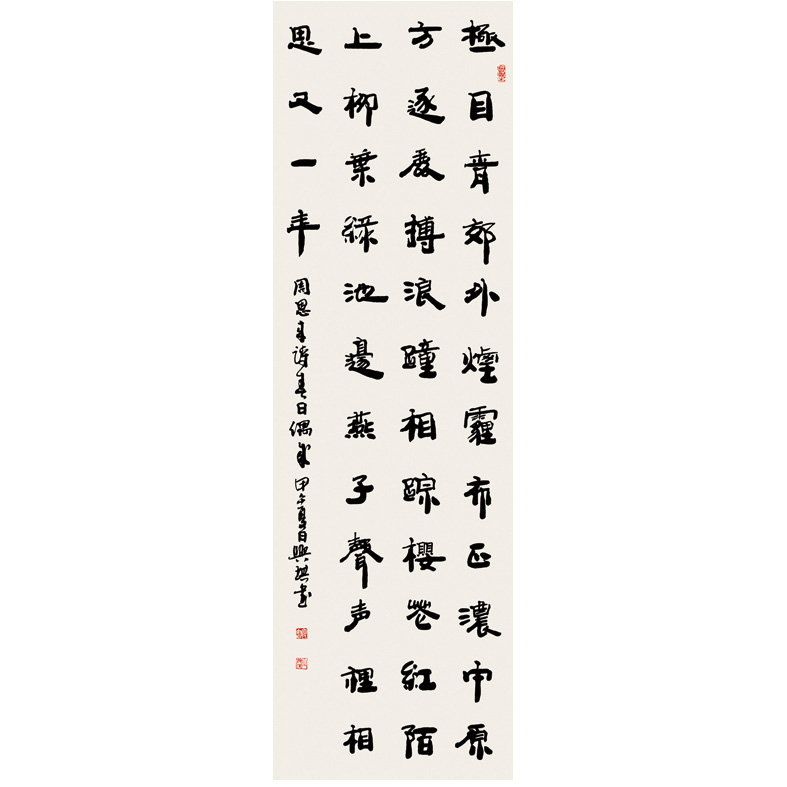 極目青郊外煙霾布正濃中原
方逐鹿搏浪踵相踪櫻花紅陌
上柳葉綠池邊燕子聲声裡相
思又一年
周恩来詩春日偶成甲午夏日興琪書